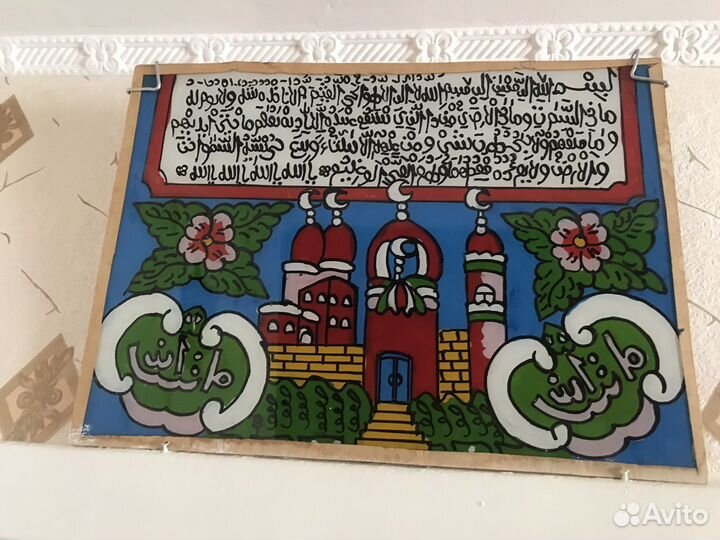 بسم الله الرحمن الرحيم الله لا اله الا هو الحي القيوم لا تاخذه سنة ولا نوم له
ما في السموت وما في الارض من ذا الذي يشفع عنده الا باذنه يعلم ما بين ايديهم
وما خلفهم ولا يحيطون بشي من علمه الا بما شاء وسع كرسيه السموات
والارض ولا يوده حفظهما وهو العلي العظيم يا الله يا الله يا الله يا الله
ما شاء الله
ما شاء الله
Avito